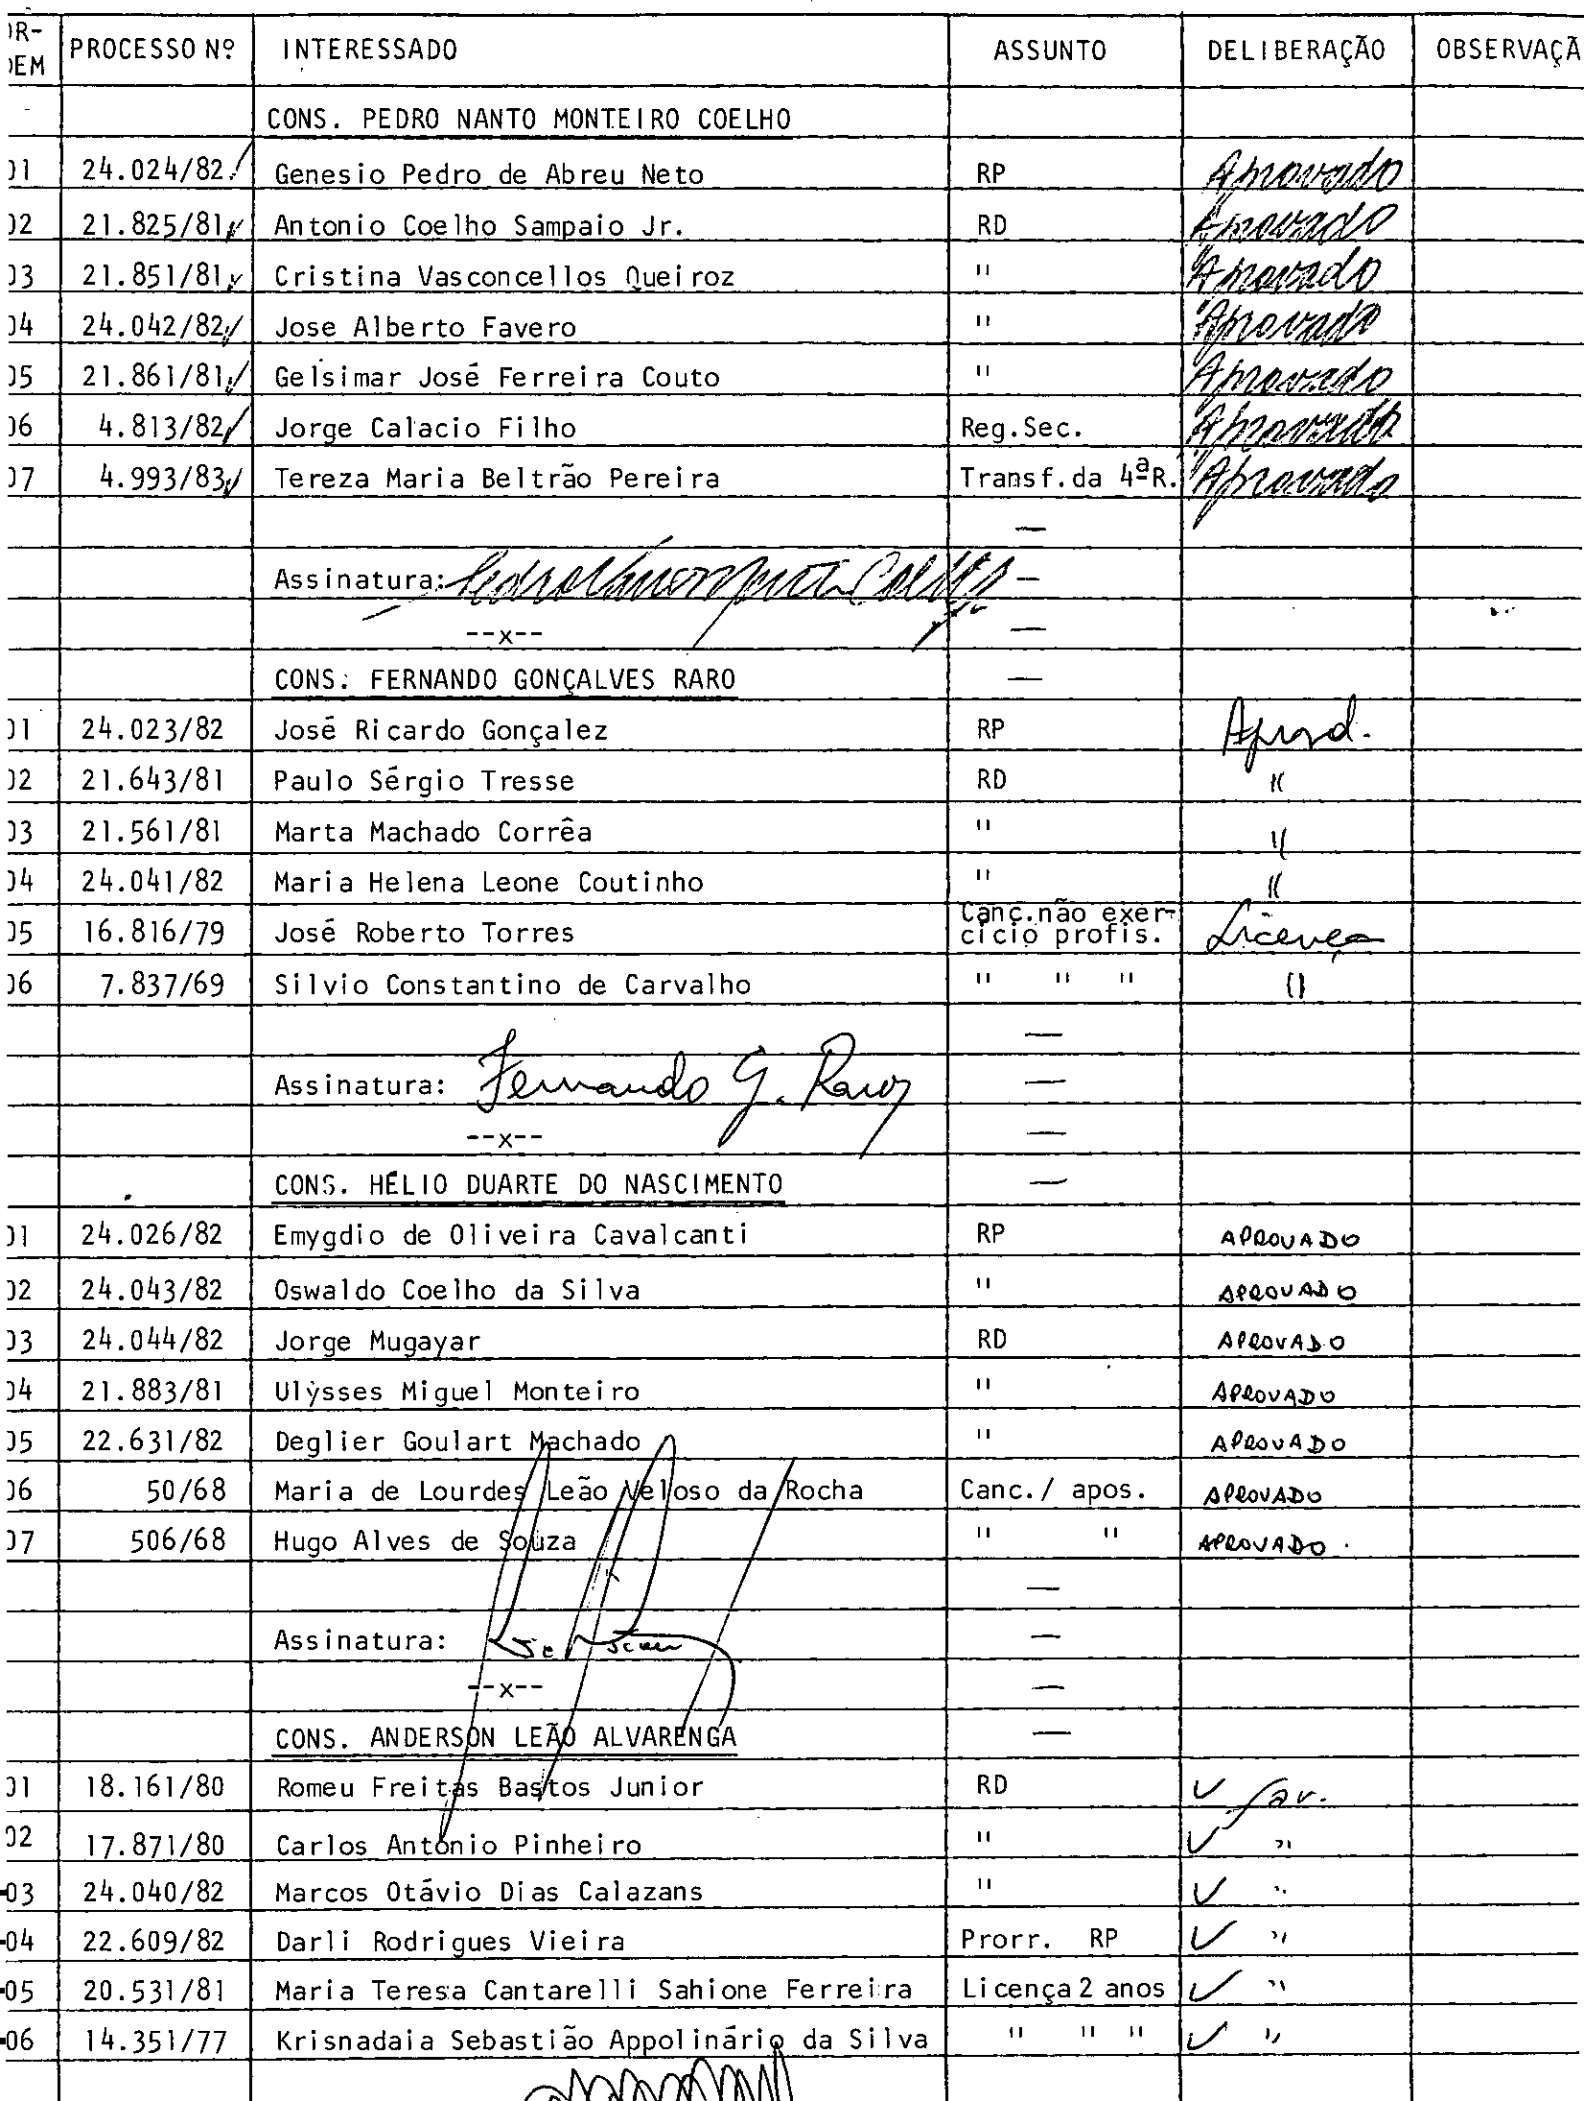 PROCESSO Nº INTERESSADO ASSUNTO DELIBERAÇÃO OBSERVAÇÃ
CONS. PEDRO NANTO MONTEIRO COELHO
01 24.024/82 Genesio Pedro de Abreu Neto RP Aprovado
02 21.825/81 Antonio Coelho Sampaio Jr. RD Aprovado
03 21.851/81 Cristina Vasconcellos Queiroz " Aprovado
04 24.042/82 Jose Alberto Favero " Aprovado
05 21.861/81 Gelsimar José Ferreira Couto " Aprovado
06 4.813/82 Jorge Calacio Filho Reg.Sec. Aprovado
07 4.993/83 Tereza Maria Beltrão Pereira Transf.da 4ªR. Aprovado
—
Assinatura: —
--x-- —
CONS. FERNANDO GONÇALVES RARO —
01 24.023/82 José Ricardo Gonçalez RP Aprovd.
02 21.643/81 Paulo Sérgio Tresse RD "
03 21.561/81 Marta Machado Corrêa " "
04 24.041/82 Maria Helena Leone Coutinho " "
05 16.816/79 José Roberto Torres Canc.não exer-
cício profis. Licença
06 7.837/69 Silvio Constantino de Carvalho " " " "
—
Assinatura: Fernando G. Raro —
--x-- —
CONS. HÉLIO DUARTE DO NASCIMENTO —
01 24.026/82 Emygdio de Oliveira Cavalcanti RP APROVADO
02 24.043/82 Oswaldo Coelho da Silva " APROVADO
03 24.044/82 Jorge Mugayar RD APROVADO
04 21.883/81 Ulysses Miguel Monteiro " APROVADO
05 22.631/82 Deglier Goulart Machado " APROVADO
06 50/68 Maria de Lourdes Leão Veloso da Rocha Canc./ apos. APROVADO
07 506/68 Hugo Alves de Souza " " APROVADO
—
Assinatura: —
--x-- —
CONS. ANDERSON LEÃO ALVARENGA —
01 18.161/80 Romeu Freitas Bastos Junior RD ✓ fav.
02 17.871/80 Carlos Antônio Pinheiro " ✓ "
03 24.040/82 Marcos Otávio Dias Calazans " ✓ "
04 22.609/82 Darli Rodrigues Vieira Prorr. RP ✓ "
05 20.531/81 Maria Teresa Cantarelli Sahione Ferreira Licença 2 anos ✓ "
06 14.351/77 Krisnadaia Sebastião Appolinário da Silva " " " ✓ "